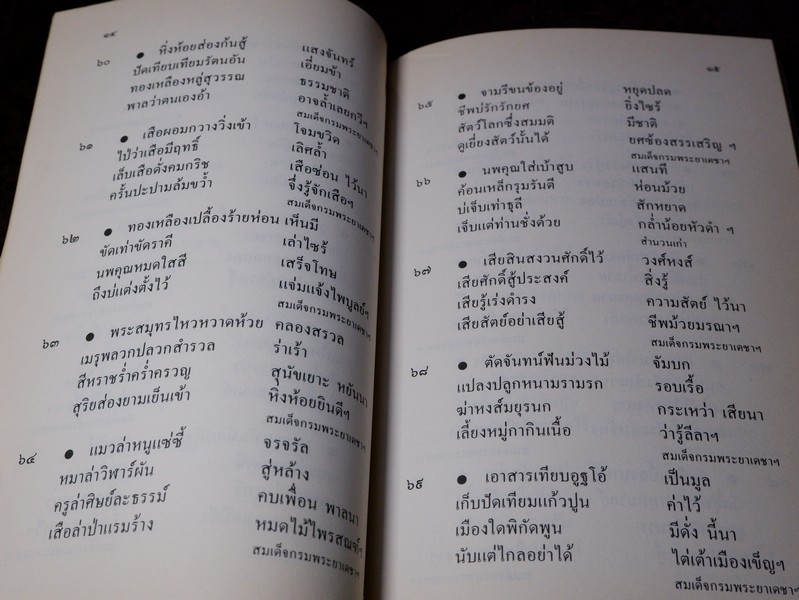 ๑๔
๖๐ ● หิ่งห้อยส่องก้นสู้ แสงจันทร์
ปัดเทียบเทียมรัตนอัน เอี่ยมข้า
ทองเหลืองหลู่สุวรรณ ธรรมชาติ
พาลว่าตนเองอ้า อาจล้ำเลยกวีฯ
สมเด็จกรมพระยาเดชาฯ
๖๑ ● เสือผอมกวางวิ่งเข้า โจมขวิด
ไป่ว่าเสือมีฤทธิ์ เลิศล้ำ
เล็บเสือดั่งคมกริช เสือซ่อน ไว้นา
ครั้นปะปามล้มขว้ำ จึ่งรู้จักเสือฯ
สมเด็จกรมพระยาเดชาฯ
๖๒ ● ทองเหลืองเปลื้องร้ายห่อน เห็นมี
ขัดเท่าขัดราคี เล่าไซร้
นพคุณหมดใสสี เสร็จโทษ
ถึงบ่แต่งตั้งไว้ แจ่มแจ้งไพบูลย์ฯ
สมเด็จกรมพระยาเดชาฯ
๖๓ ● พระสมุทรไหวหวาดห้วย คลองสรวล
เมรุพลวกปลวกสำรวล ร่าเร้า
สีหราชร่ำคร่ำครวญ สุนัขเยาะ หยันนา
สุริยส่องยามเย็นเข้า หิ่งห้อยยินดีฯ
สมเด็จกรมพระยาเดชาฯ
๖๔ ● แมวล่าหนูแซ่ซี้ จรจรัล
หมาล่าวิฬาร์ผัน สู่หล้าง
ครูล่าศิษย์ละธรรม์ คบเพื่อน พาลนา
เสือล่าป่าแรมร้าง หมดไม้ไพรสณฑ์ฯ
สมเด็จกรมพระยาเดชาฯ
๑๕
๖๕ ● จามรีขนข้องอยู่ หยุดปลด
ชีพปรักรักยศ ยิ่งไซร้
สัตว์โลกซึ่งสมมติ มีชาติ
ดูเยี่ยงสัตว์นั้นได้ ยศซ้องสรรเสริญ ฯ
สมเด็จกรมพระยาเดชาฯ
๖๖ ● นพคุณใส่เบ้าสูบ แสนที
ค้อนเหล็กรุมรันตี ห่อนม้วย
บ่เจ็บเท่าธุลี สักหยาด
เจ็บแต่ท่านชั่งด้วย กล่ำน้อยหัวดำ ฯ
สำนวนเก่า
๖๗ ● เสียสินสงวนศักดิ์ไว้ วงศ์หงส์
เสียศักดิ์สู้ประสงค์ สิ่งรู้
เสียรู้เร่งดำรง ความสัตย์ ไว้นา
เสียสัตย์อย่าเสียสู้ ชีพม้วยมรณาฯ
สมเด็จกรมพระยาเดชาฯ
๖๘ ● ตัดจันทน์ฟันม่วงไม้ จัมบก
แปลงปลูกหนามรามรก รอบเรื้อ
ฆ่าหงส์มยุรนก กระเหว่า เสียนา
เลี้ยงหมู่กากินเนื้อ ว่ารู้ลีลาฯ
สมเด็จกรมพระยาเดชาฯ
๖๙ ● เอาสารเทียบอูฐโอ้ เป็นมูล
เก็บปัดเทียมแก้วปูน ค่าไว้
เมืองใดพิกัดพูน มีดั่ง นี้นา
นับแต่ไกลอย่าได้ ไต่เต้าเมืองเข็ญฯ
สมเด็จกรมพระยาเดชาฯ